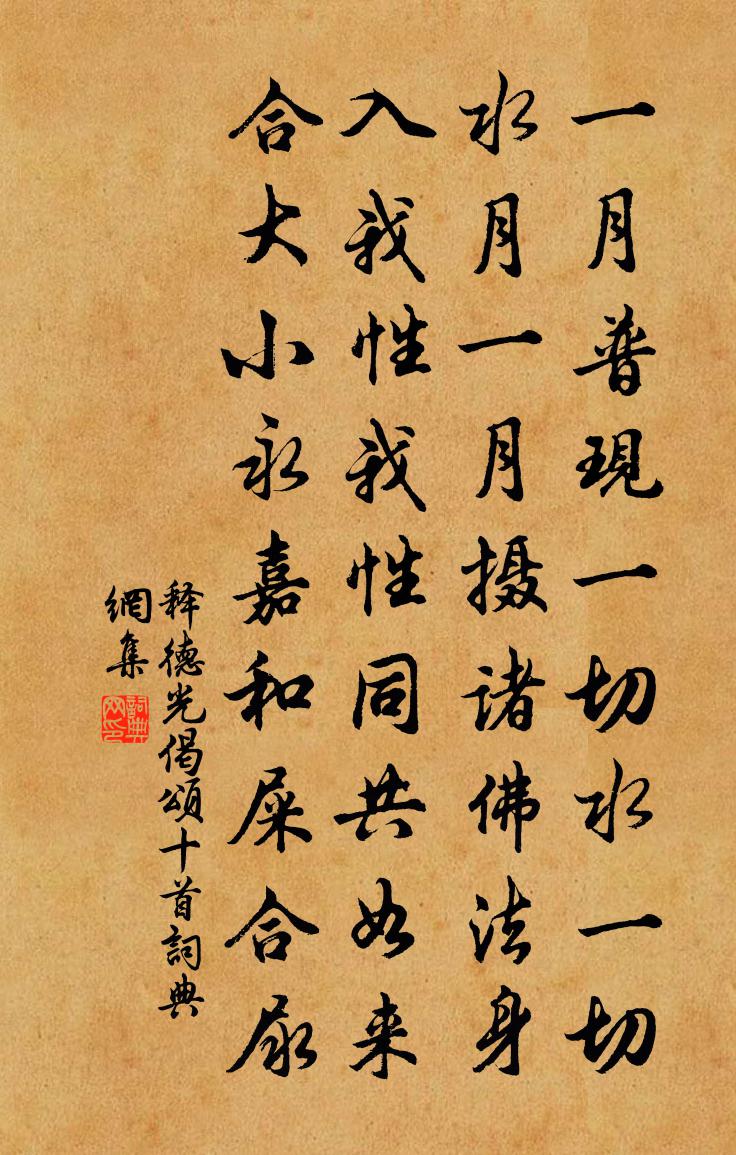 一月普現一切水一切
水月一月摄諸佛法身
入我性我性同共如来
合大小永嘉和屎合尿
释德光偈頌十首詞典
網集
詞典
网印